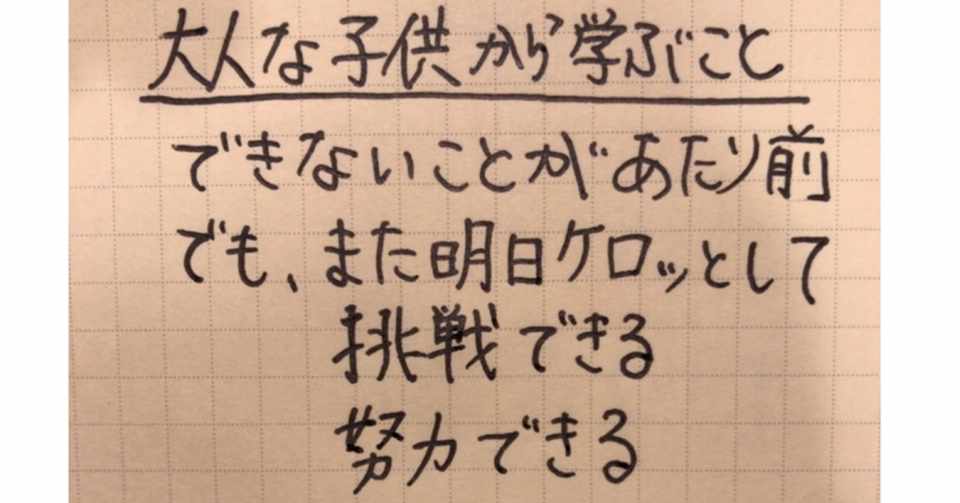 大人な子供から学ぶこと
できないことがあたり前
でも、また明日ケロッとして
挑戦できる
努力できる